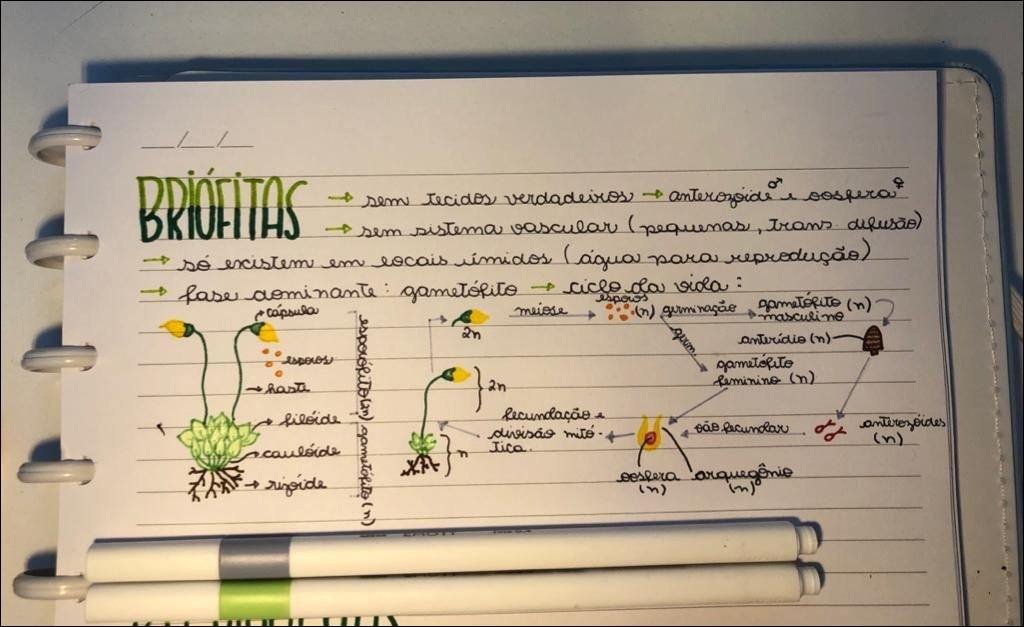 __/__/__
BRIÓFITAS → sem tecidos verdadeiros → anterozóide ♂ e oosfera ♀
→ sem sistema vascular (pequenas, trans. difusão)
→ só existem em locais úmidos (água para reprodução)
→ fase dominante: gametófito → ciclo da vida:
cápsula
esporos
haste
filóide
caulóide
rizóide
esporófito (2n) gametófito (n)
2n
meiose
esporos (n)
germinação
gametófito (n)
masculino
anterídio (n)
germ.
gametófito
feminino (n)
2n
n
fecundação e
divisão mitó-
tica.
vão fecundar
anterozóides
(n)
oosfera
(n)
arquegônio
(n)